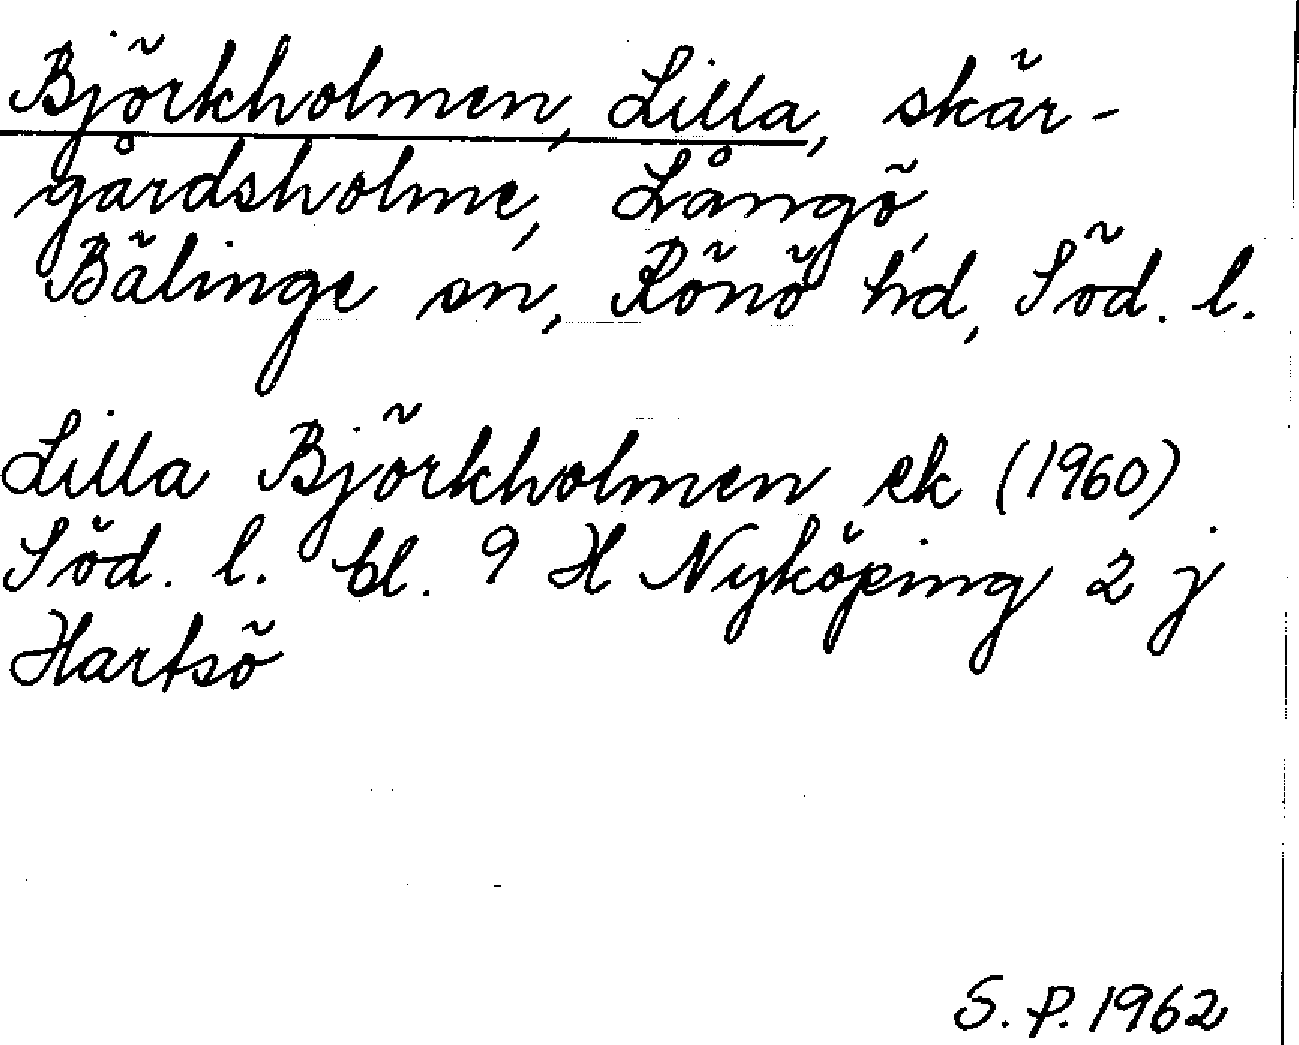 Björkholmen, Lilla, skär-
gårdsholme, Långö,
Bälinge sn, Rönö hd, Söd. l.
Lilla Björkholmen ek (1960)
Söd. l. bl. 9 H Nyköping 2 j
Hartsö
S. P. 1962